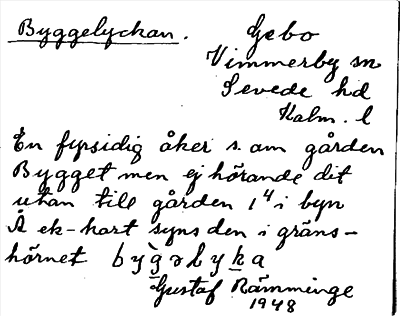 Byggelyckan. Gebo
Vimmerby sn
Sevede hd
Kalm. l
En fyrsidig åker s. om gården
Bygget men ej hörande dit
utan till gården 1⁴ i byn
Å ek-kart syns den i gräns-
hörnet bỳg̲əly̲ka
Gustaf Rämminge
1948